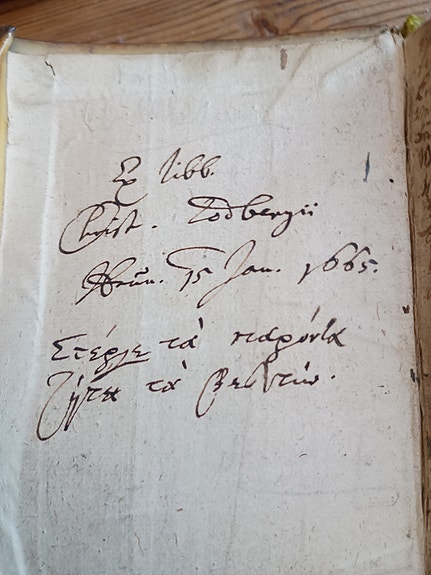 Ex libb.
Christ. Todbergii
15 Jan. 1665.
Στέργε τὰ παρόντα
ζήτει τὰ βελτίω.